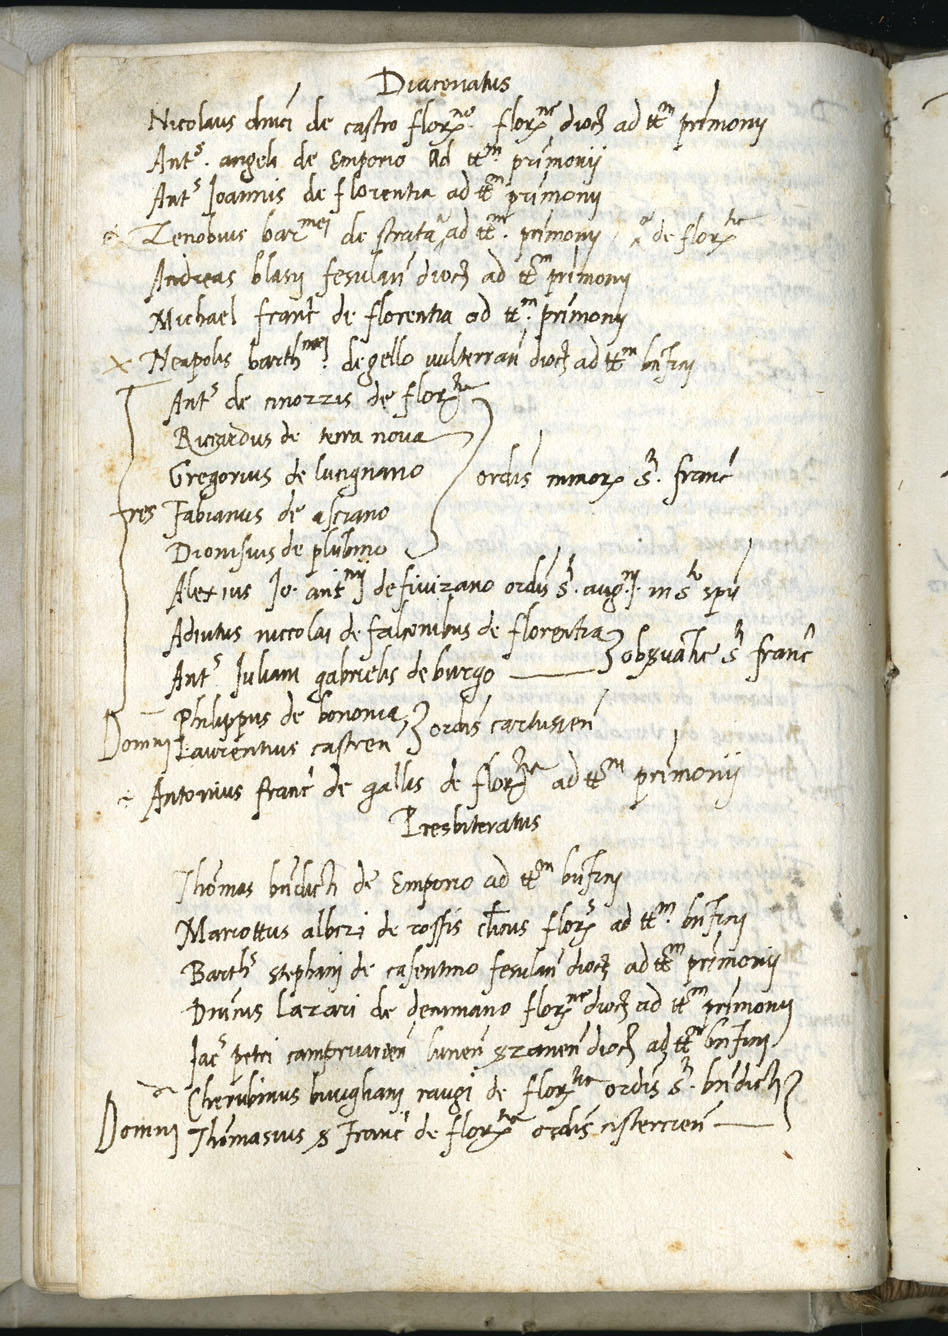 Diaconatus
Nicolaus dnici de castro florne. florne dioc ad ttm primonij
Ants. angeli de Emporio Ad ttm. primonij
Ants Joannis de florentia ad ttm primonij
Zenobius barmei de strata ad ttm. primonij de flortie
Andreas blasij fesulan dioc ad ttm primonij
Michael franc de florentia ad ttm. primonij
× Neapolis barthmei de gello vulterran dioc ad ttm bnficij
Ants de cinozzis de flortia
Riccardus de terra nova
Gregorius de lucignano ordis minor S. franc
fres Fabianus de asciano
Dionisius de plubino
Alexius Jo. antnij de fivizano ordis S. augni. in sto spu
Adiutus niccolai de falconibus de florentia
Ants. Juliani gabrielis de burgo obsvatie S franc
Philippus de bononia
Domni Laurentius castren ordis cartusien
Antonius franc de gallis de flortia ad ttm primonij
Presbiteratus
Thomas bndicti de Emporio ad ttm bnficij
Mariottus alberi de rossis clicus flor ad ttm. bnficij
Barths stephani de casentino fesulan dioc ad ttm primonij
Dnicus Lazari de decimano florne dioc ad ttm primonij
Jacs petri lunen dioc ad ttm bnficij
Cherubinus de flortie ordis S. bndicti
Domni Thomasius franc de flortia ordis cistercien